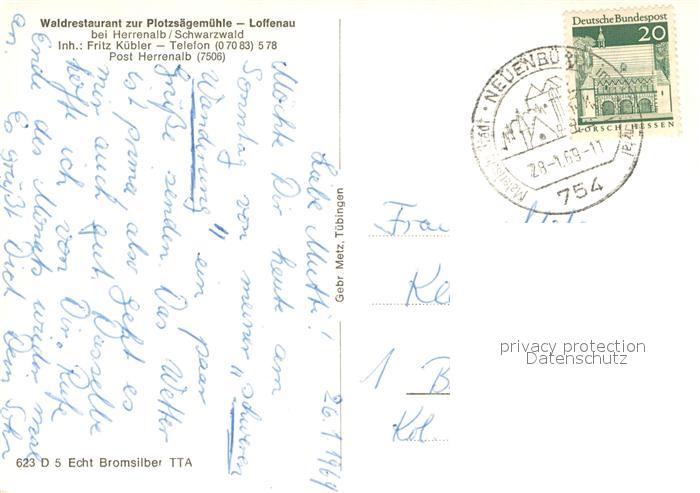 Waldrestaurant zur Plotzsägemühle – Loffenau
bei Herrenalb/Schwarzwald
Inh.: Fritz Kübler – Telefon (07083) 578
Post Herrenalb (7506)
26.1.1969
Liebe Mutti!
Möchte Dir heute am
Sonntag von meiner "schweren
Wanderung" ein paar
Grüße senden. Das Wetter
ist prima, also geht es
mir auch gut. Dasselbe
hoffe ich von Dir. Rufe
Ende des Monats wieder mal
an. Es grüßt Dich Dein Sohn
623 D 5 Echt Bromsilber TTA
Gebr. Metz, Tübingen
Deutsche Bundespost
20
LORSCH/HESSEN
NEUENBÜR
28.-1.69-11
754
Frau
Ke
1 B
Kol.
privacy protection
Datenschutz